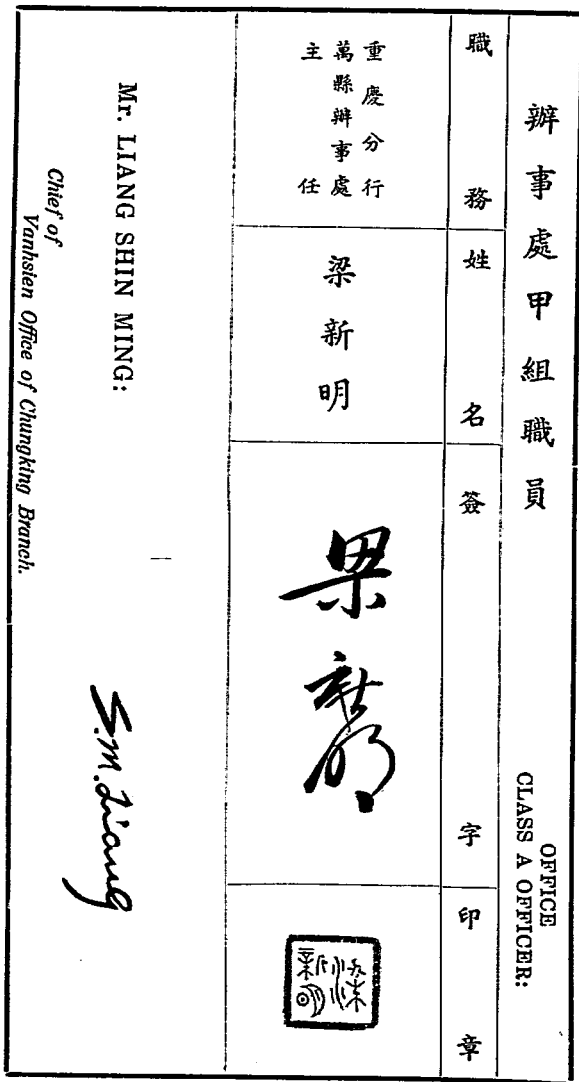 辦事處甲組職員
OFFICE
CLASS A OFFICER:
職務
姓名
簽字
印章
重慶分行
萬縣辦事處
主任
梁新明
梁新明
梁新明
Mr. LIANG SHIN MING:
Chief of
Vanhsien Office of Chungking Branch.
S. M. Liang